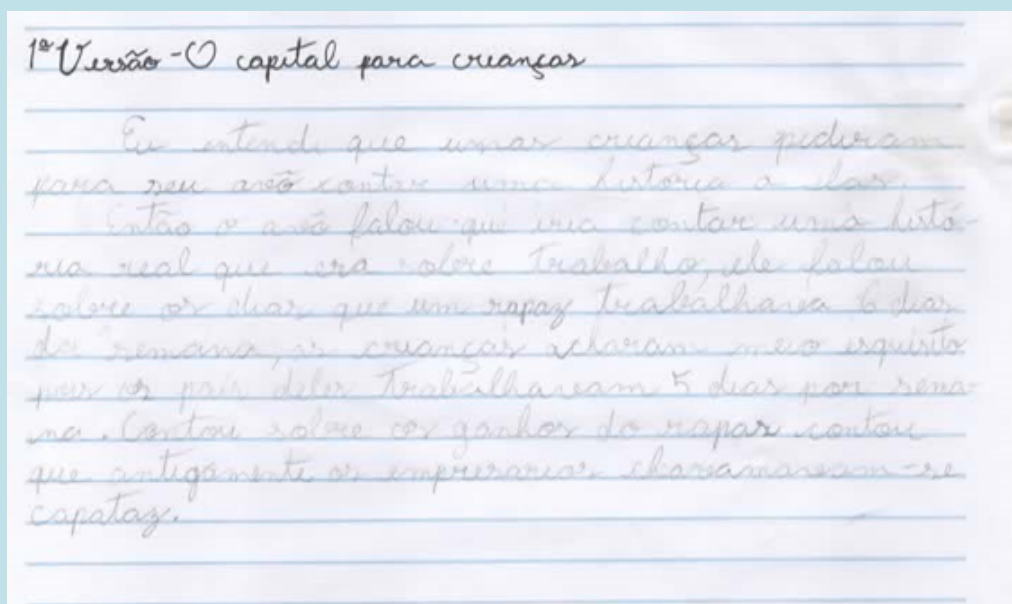 1ª Versão - O capital para crianças
Eu entendi que umas crianças pediram
para seu avô contar uma história a elas.
Então o avô falou que iria contar uma histó-
ria real que era sobre trabalho, ele falou
sobre os dias que um rapaz trabalhava 6 dias
da semana, as crianças acharam meio esquisito
pois os pais deles trabalhavam 5 dias por sema-
na. Contou sobre os ganhos do rapaz contou
que antigamente os empresarios -se
capataz.